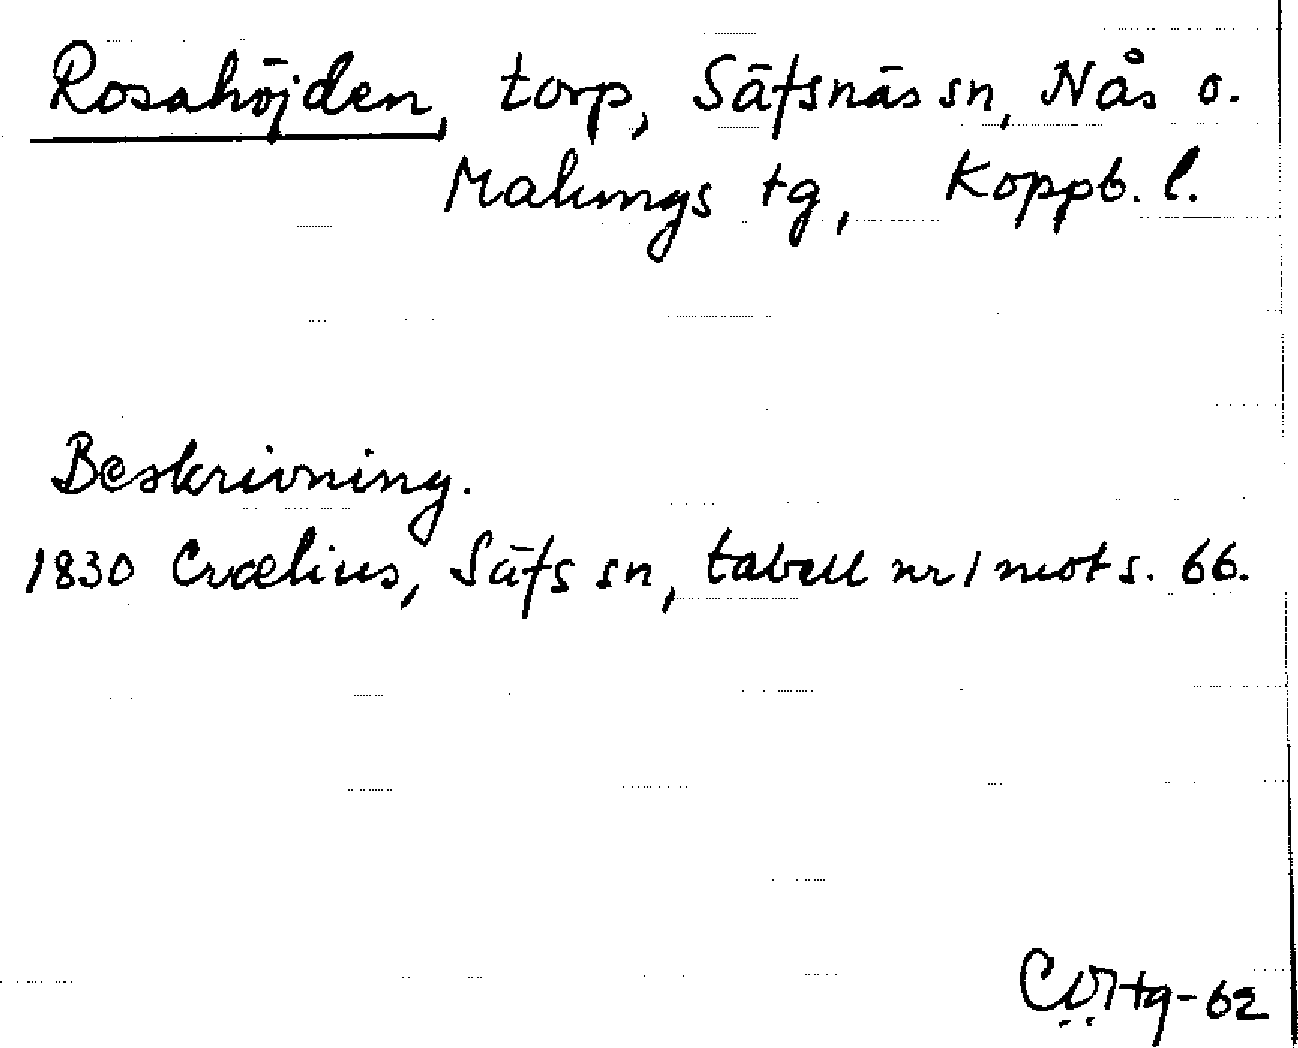 Rosahöjden, torp, Säfsnäs sn, Nås o.
Malungs tg, Koppb. l.
Beskrivning.
1830 Crælius, Säfs sn, tabell nr 1 mot s. 66.